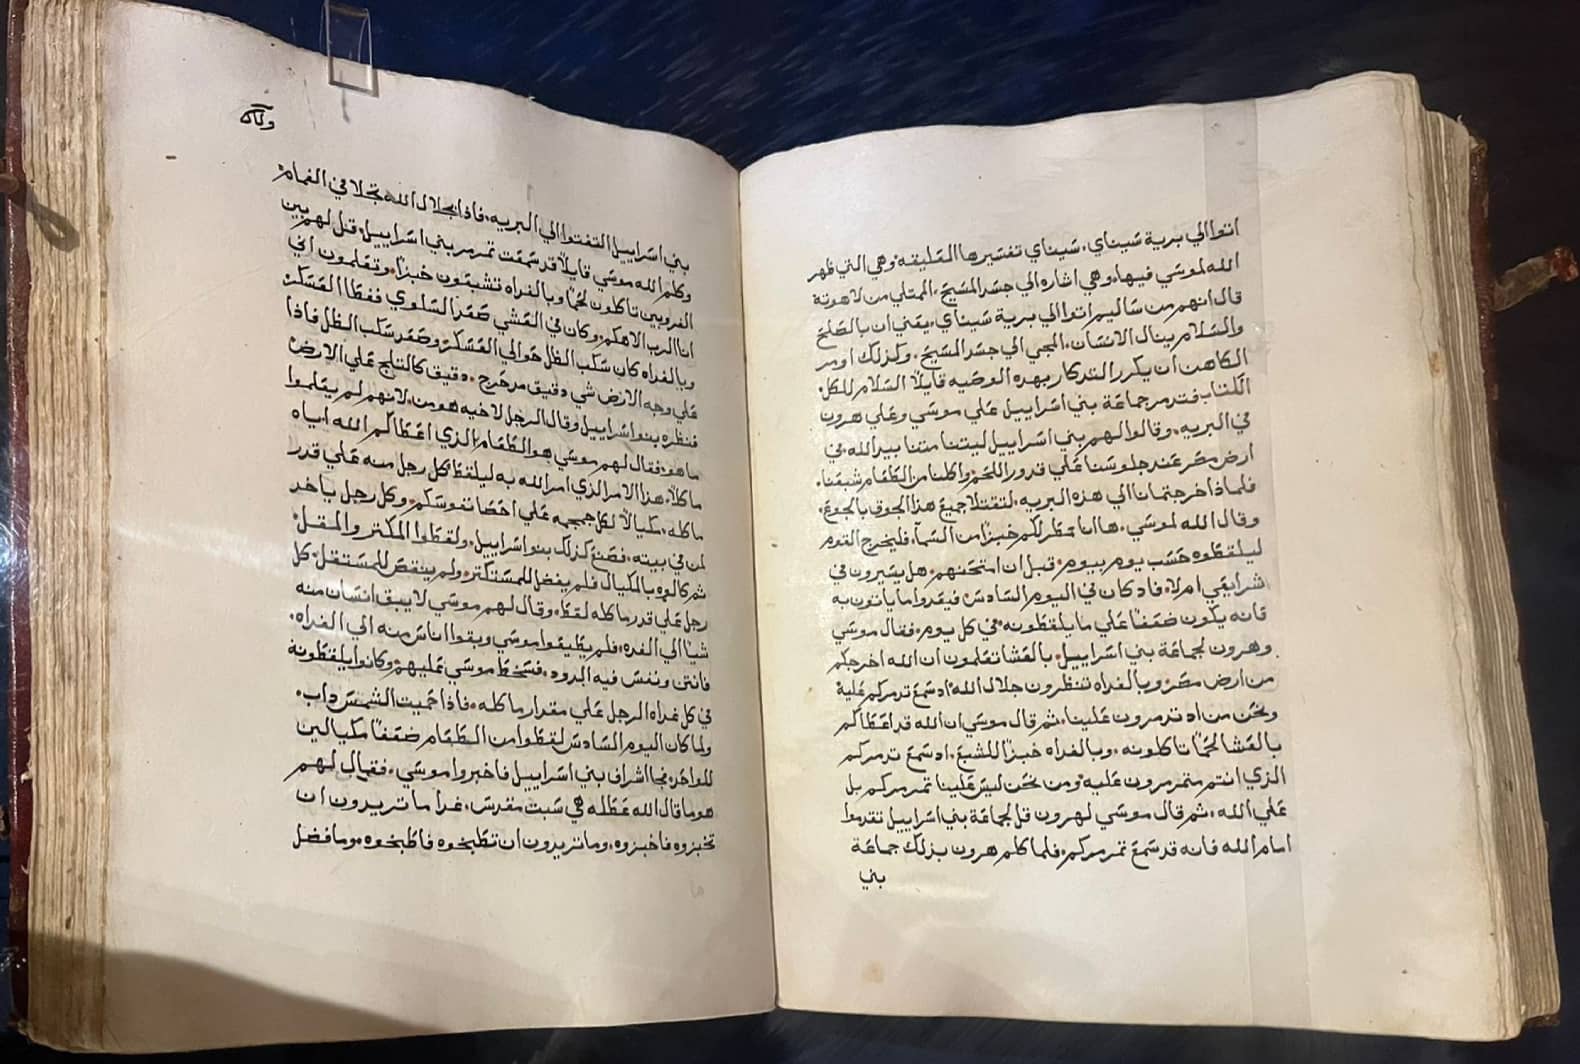 اتوا الي برية سيناي، سيناي تفسيرها العليقه وهي التي ظهر
الله لموسي فيها، وهي اشاره الي جسد المسيح، الممتلي من لاهوته
قال انهم من ساليم اتوا الي برية سيناي، يعني ان بالصلح
والسلام ينال الانسان المجي الي جسد المسيح، وكذلك اومر
الكاهن ان يكرر التدكار بهده الوصيه قايلاً السلام للكل.
الكتاب فتدمر جماعة بني اسراييل علي موسي وعلي هرون
في البريه، وقالوا لهم بني اسراييل ليتنا متنا بيد الله في
ارض مصر عند جلوسنا علي قدور اللحم واكلنا من الطعام شبعنا.
فلماذا اخرجتمانا الي هذه البريه، لتقتلا جميع هذا الجوق بالجوع،
وقال الله لموسي، ها انا ممطر لكم خبزاً من السمآ، فليخرج القوم
ليلقطوه حسب يوم بيوم، قبل ان امتحنهم، هل يسيرون في
شرايعي ام لا، فاد كان في اليوم السادس فيعدوا ما ياتون به
فانه يكون ضعفاً علي ما يلقطونه في كل يوم، فقال موسي
وهرون لجماعة بني اسراييل، بالعشا تعلمون ان الله اخرجكم
من ارض مصر وبالغداه تنظرون جلال الله اد سمع تدمركم عليه
ونحن من اد تدمرون علينا، ثم قال موسي ان الله قد اعطاكم
بالعشا لحماً تاكلونه، وبالغداه خبزاً للشبع، اد سمع تدمركم
الذي انتم متمرمرون عليه ومن نحن ليس علينا تمرمركم بل
علي الله، ثم قال موسي لهرون قل لجماعة بني اسراييل تقدموا
امام الله فانه قد سمع تمرمركم، فلما كلم هرون بذلك جماعة
بني
بني اسراييل التفتوا الي البريه، فاذا بجلال الله تجلا في الغمام
وكلم الله موسي قايلاً قد سمعت تمرمر بني اسراييل، قل لهم بين
الغروبين تاكلون لحماً وبالغداه تشبعون خبزاً، وتعلمون اني
انا الرب الاهكم، وكان في العشي صعد السلوي فغطا العسكر
وبالغداه كان سكب الظل حوالي العسكر وصعد سكب الظل فاذا
علي وجه الارض شي دقيق مدحرج، دقيق كالتلج علي الارض
فنظره بنو اسراييل وقال الرجل لاخيه هو من، لانهم لم يعلموا
ما هو، فقال لهم موسي هو الطعام الذي اعطاكم الله اياه
ماكلاً، هذا الامر الذي امر الله به ليلقط كل رجل منه علي قدر
ماكله، مكيالاً لكل جمجمه علي احصا نفوسكم، وكل رجل ياخد
لمن في بيته، فصنع كذلك بنو اسراييل، ولقطوا المكتر والمقل،
ثم كالوه بالمكيال فلم يفضل للمستكتر، ولم ينقص للمستقل، كل
رجل علي قدر ماكله لقط، وقال لهم موسي لا يبق انسان منه
شيا الي الغده، فلم يطيعوا موسي وبقوا اناس منه الي الغداه،
فانتن ونغس فيه الدود، فسخط موسي عليهم، وكانوا يلقطونه
في كل غداه الرجل علي مقدار ماكله، فاذا حميت الشمس داب،
ولما كان اليوم السادس لقطوا من الطعام ضعفاً مكيالين
للواحد، فجا اشراف بني اسراييل فاخبروا موسي، فقال لهم
هو ما قال الله عطله هي سبت مقدس، غدا ما تريدون ان
تخبزوه فاخبزوه، وما تريدون ان تطبخوه فاطبخوه، وما فضل